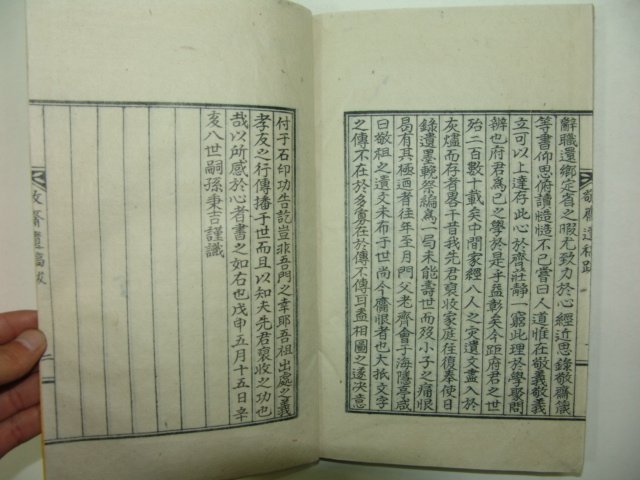 辭職還鄉定省之暇尤致力於心經近思錄敬齋箴
等書仰思俯讀慥慥不已嘗曰人道惟在敬義敬義
立可以上達存此心於齊莊靜一窮此理於學聚問
辨也府君爲己之學於是乎益彰矣今距府君之世
殆二百數十載矣中間家經八人之灾遺文盡入於
灰燼而存者畧干昔我先君裒收家庭往復奉使日
錄遺墨輓祭編爲一局未能壽世而歿小子之痛恨
曷有其極迺者往年至月門父老齊會于海隱亭咸
曰敬祖之遺文未布于世尚今齎恨者也大抵文字
之傳不在於多寡在於傳不傳耳盍相圖之遂決意
付于石印功告訖豈非吾門之幸耶吾祖出處之義
孝友之行傳播于世而且以知夫先君裒收之功也
哉以所感於心者書之如右也戊申五月十五日辛
亥八世嗣孫秉吉謹識
敬齋遺稿跋
敬齋遺稿跋